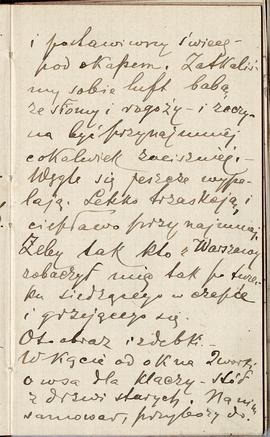 i postawiony świecy
pod okapem. Zatkaliś
my sobie luft babą
ze słomy i rogoży - i zaczy
na być przynajmniej
cokolwiek zaciszniej. -
Węgle się jeszcze wypa-
lają. Lekko trzaskają i
ciepławo przynajmniej
Żeby tak kto z Warszawy
zobaczył mię tak po turec
ku siedzącego w czepce
i grzejącego się.
Oto obraz izdebki. -
W kącie od okna 2 worki
owsa dla klaczy - stół
z drzwi starych. Na nim
samowar, przybory do